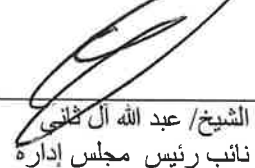 الشيخ/ عبد الله آل ثاني
نائب رئيس مجلس إدارة